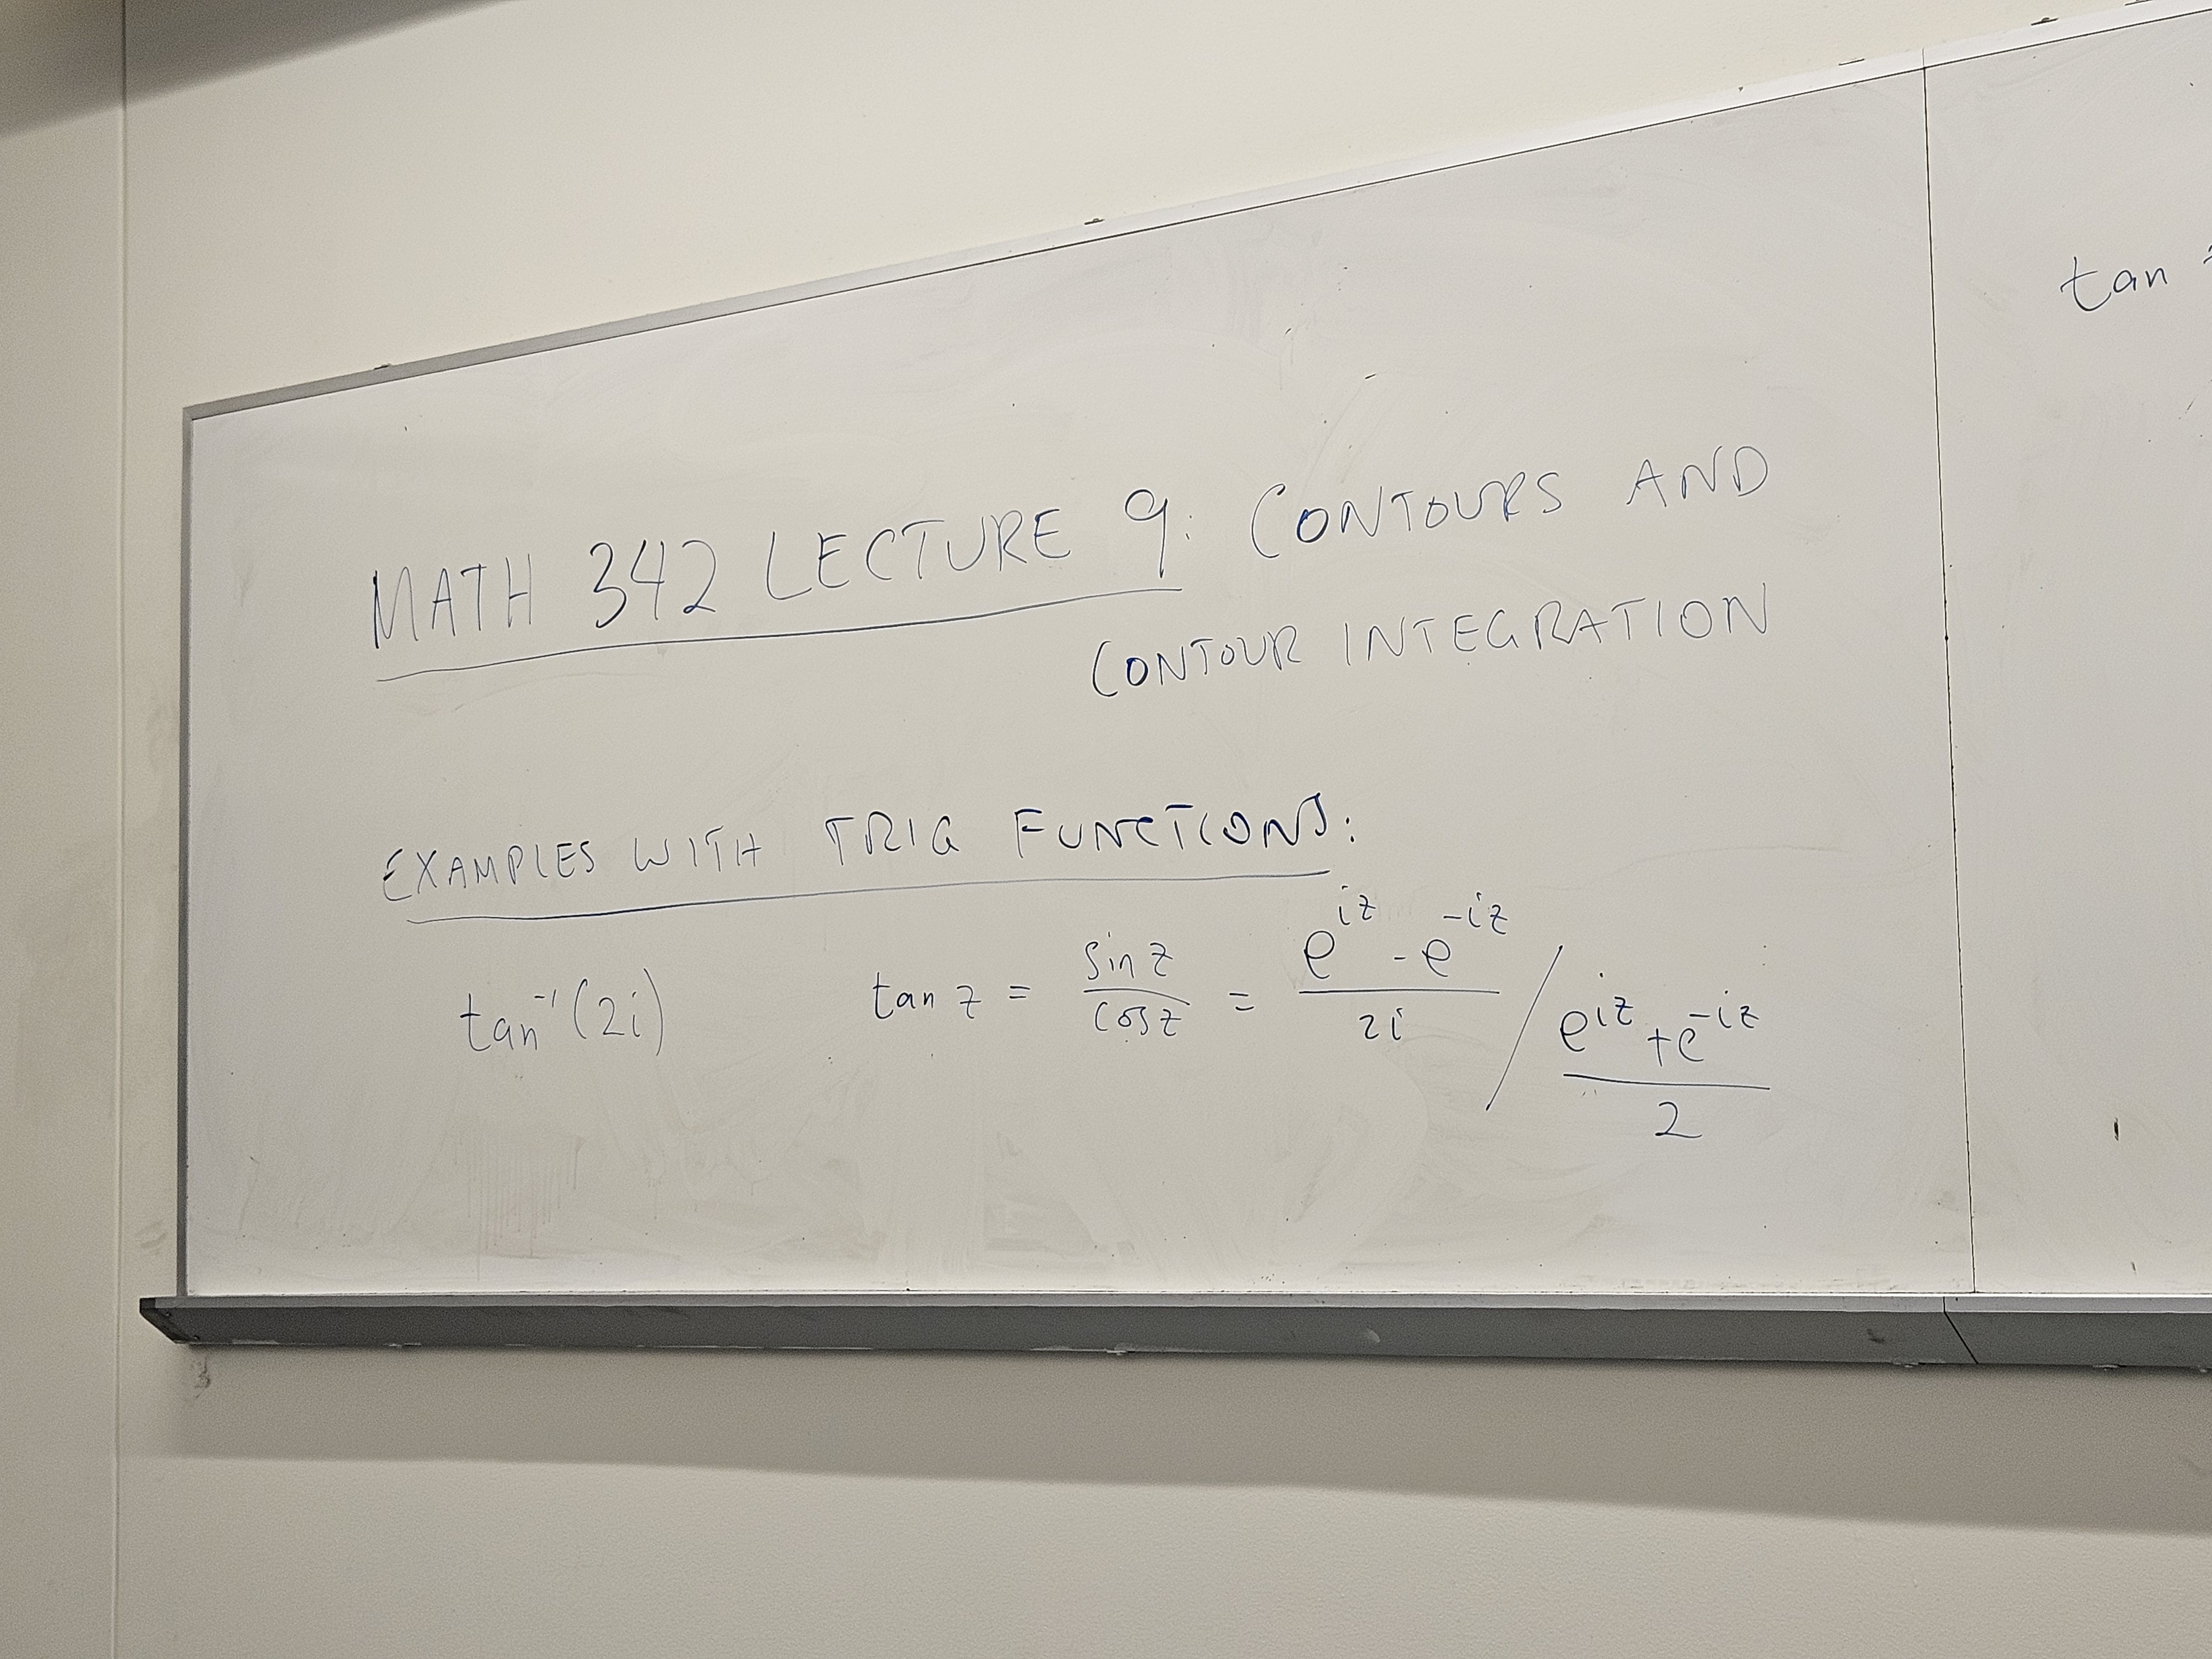 MATH 342 LECTURE 9: CONTOURS AND
CONTOUR INTEGRATION
EXAMPLES WITH TRIG FUNCTIONS:
tan⁻¹(2i) tan z = sin z / cos z = (e^{iz} - e^{-iz})/2i / (e^{iz} + e^{-iz})/2
tan